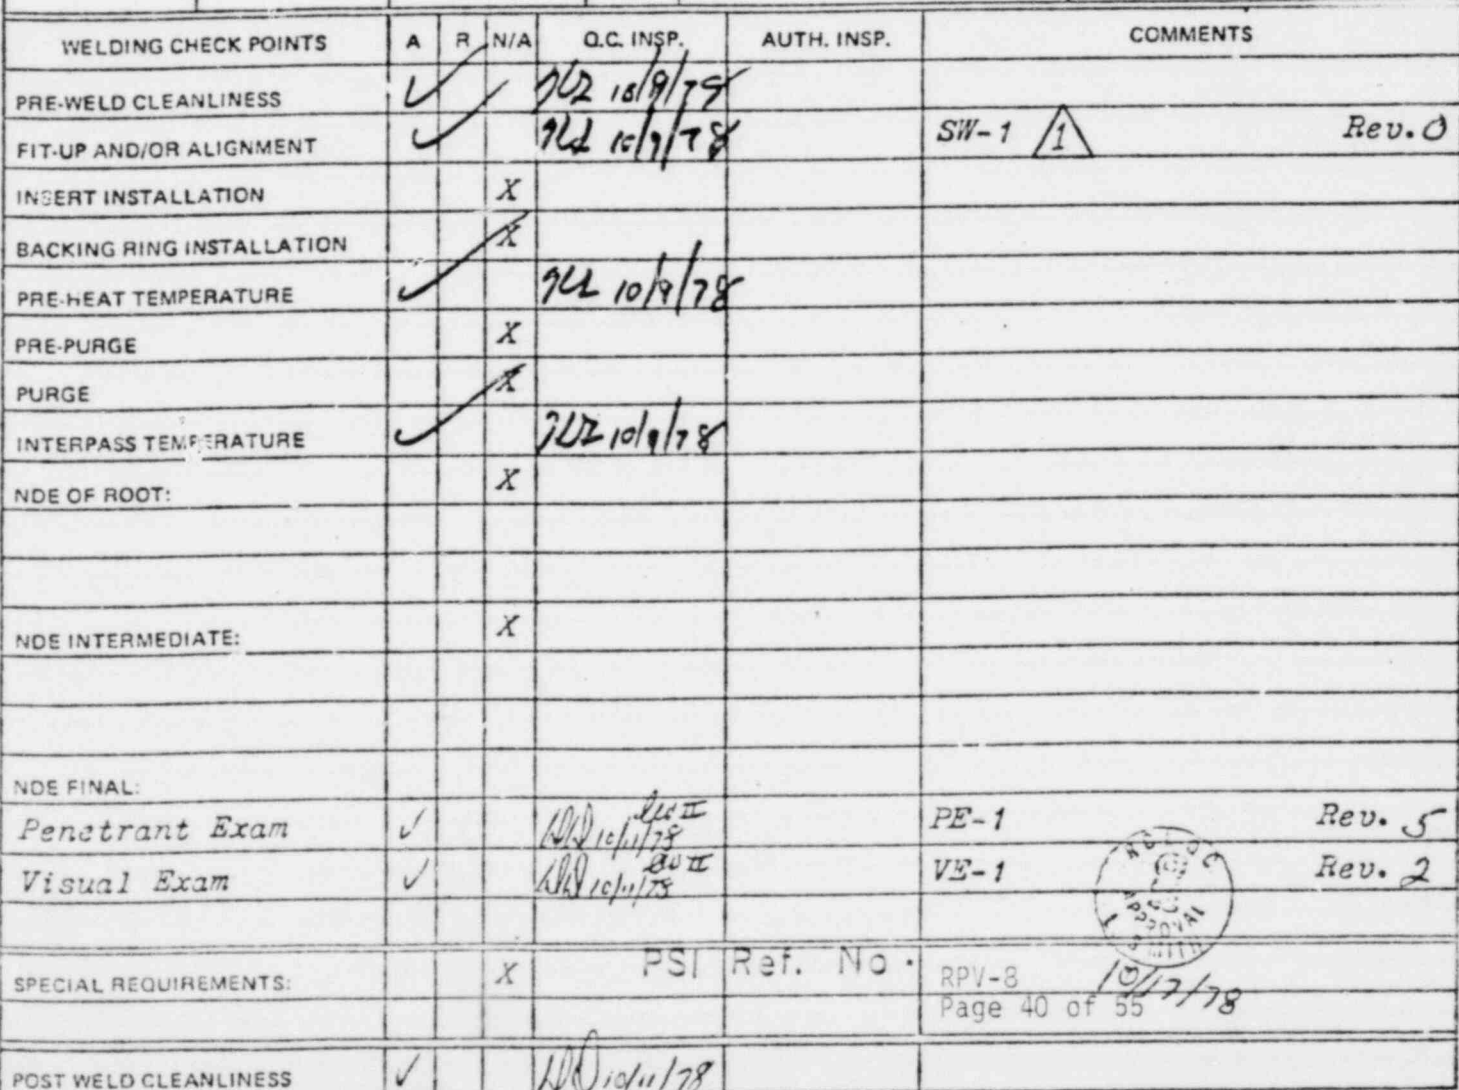 WELDING CHECK POINTS A R N/A Q.C. INSP. AUTH. INSP. COMMENTS
PRE-WELD CLEANLINESS ✓ 10/9/78
FIT-UP AND/OR ALIGNMENT ✓ 10/9/78 SW-1 1 Rev. 0
INSERT INSTALLATION X
BACKING RING INSTALLATION X
PRE-HEAT TEMPERATURE ✓ 10/9/78
PRE-PURGE X
PURGE X
INTERPASS TEMPERATURE ✓ 10/9/78
NDE OF ROOT: X
NDE INTERMEDIATE: X
NDE FINAL:
Penetrant Exam ✓ 10/11/78 Lev II PE-1 Rev. 5
Visual Exam ✓ 10/11/78 Lev II VE-1 Rev. 2
APPROVAL
SMITH
SPECIAL REQUIREMENTS: X PSI Ref. No. RPV-8 10/17/78
Page 40 of 55
POST WELD CLEANLINESS ✓ 10/11/78